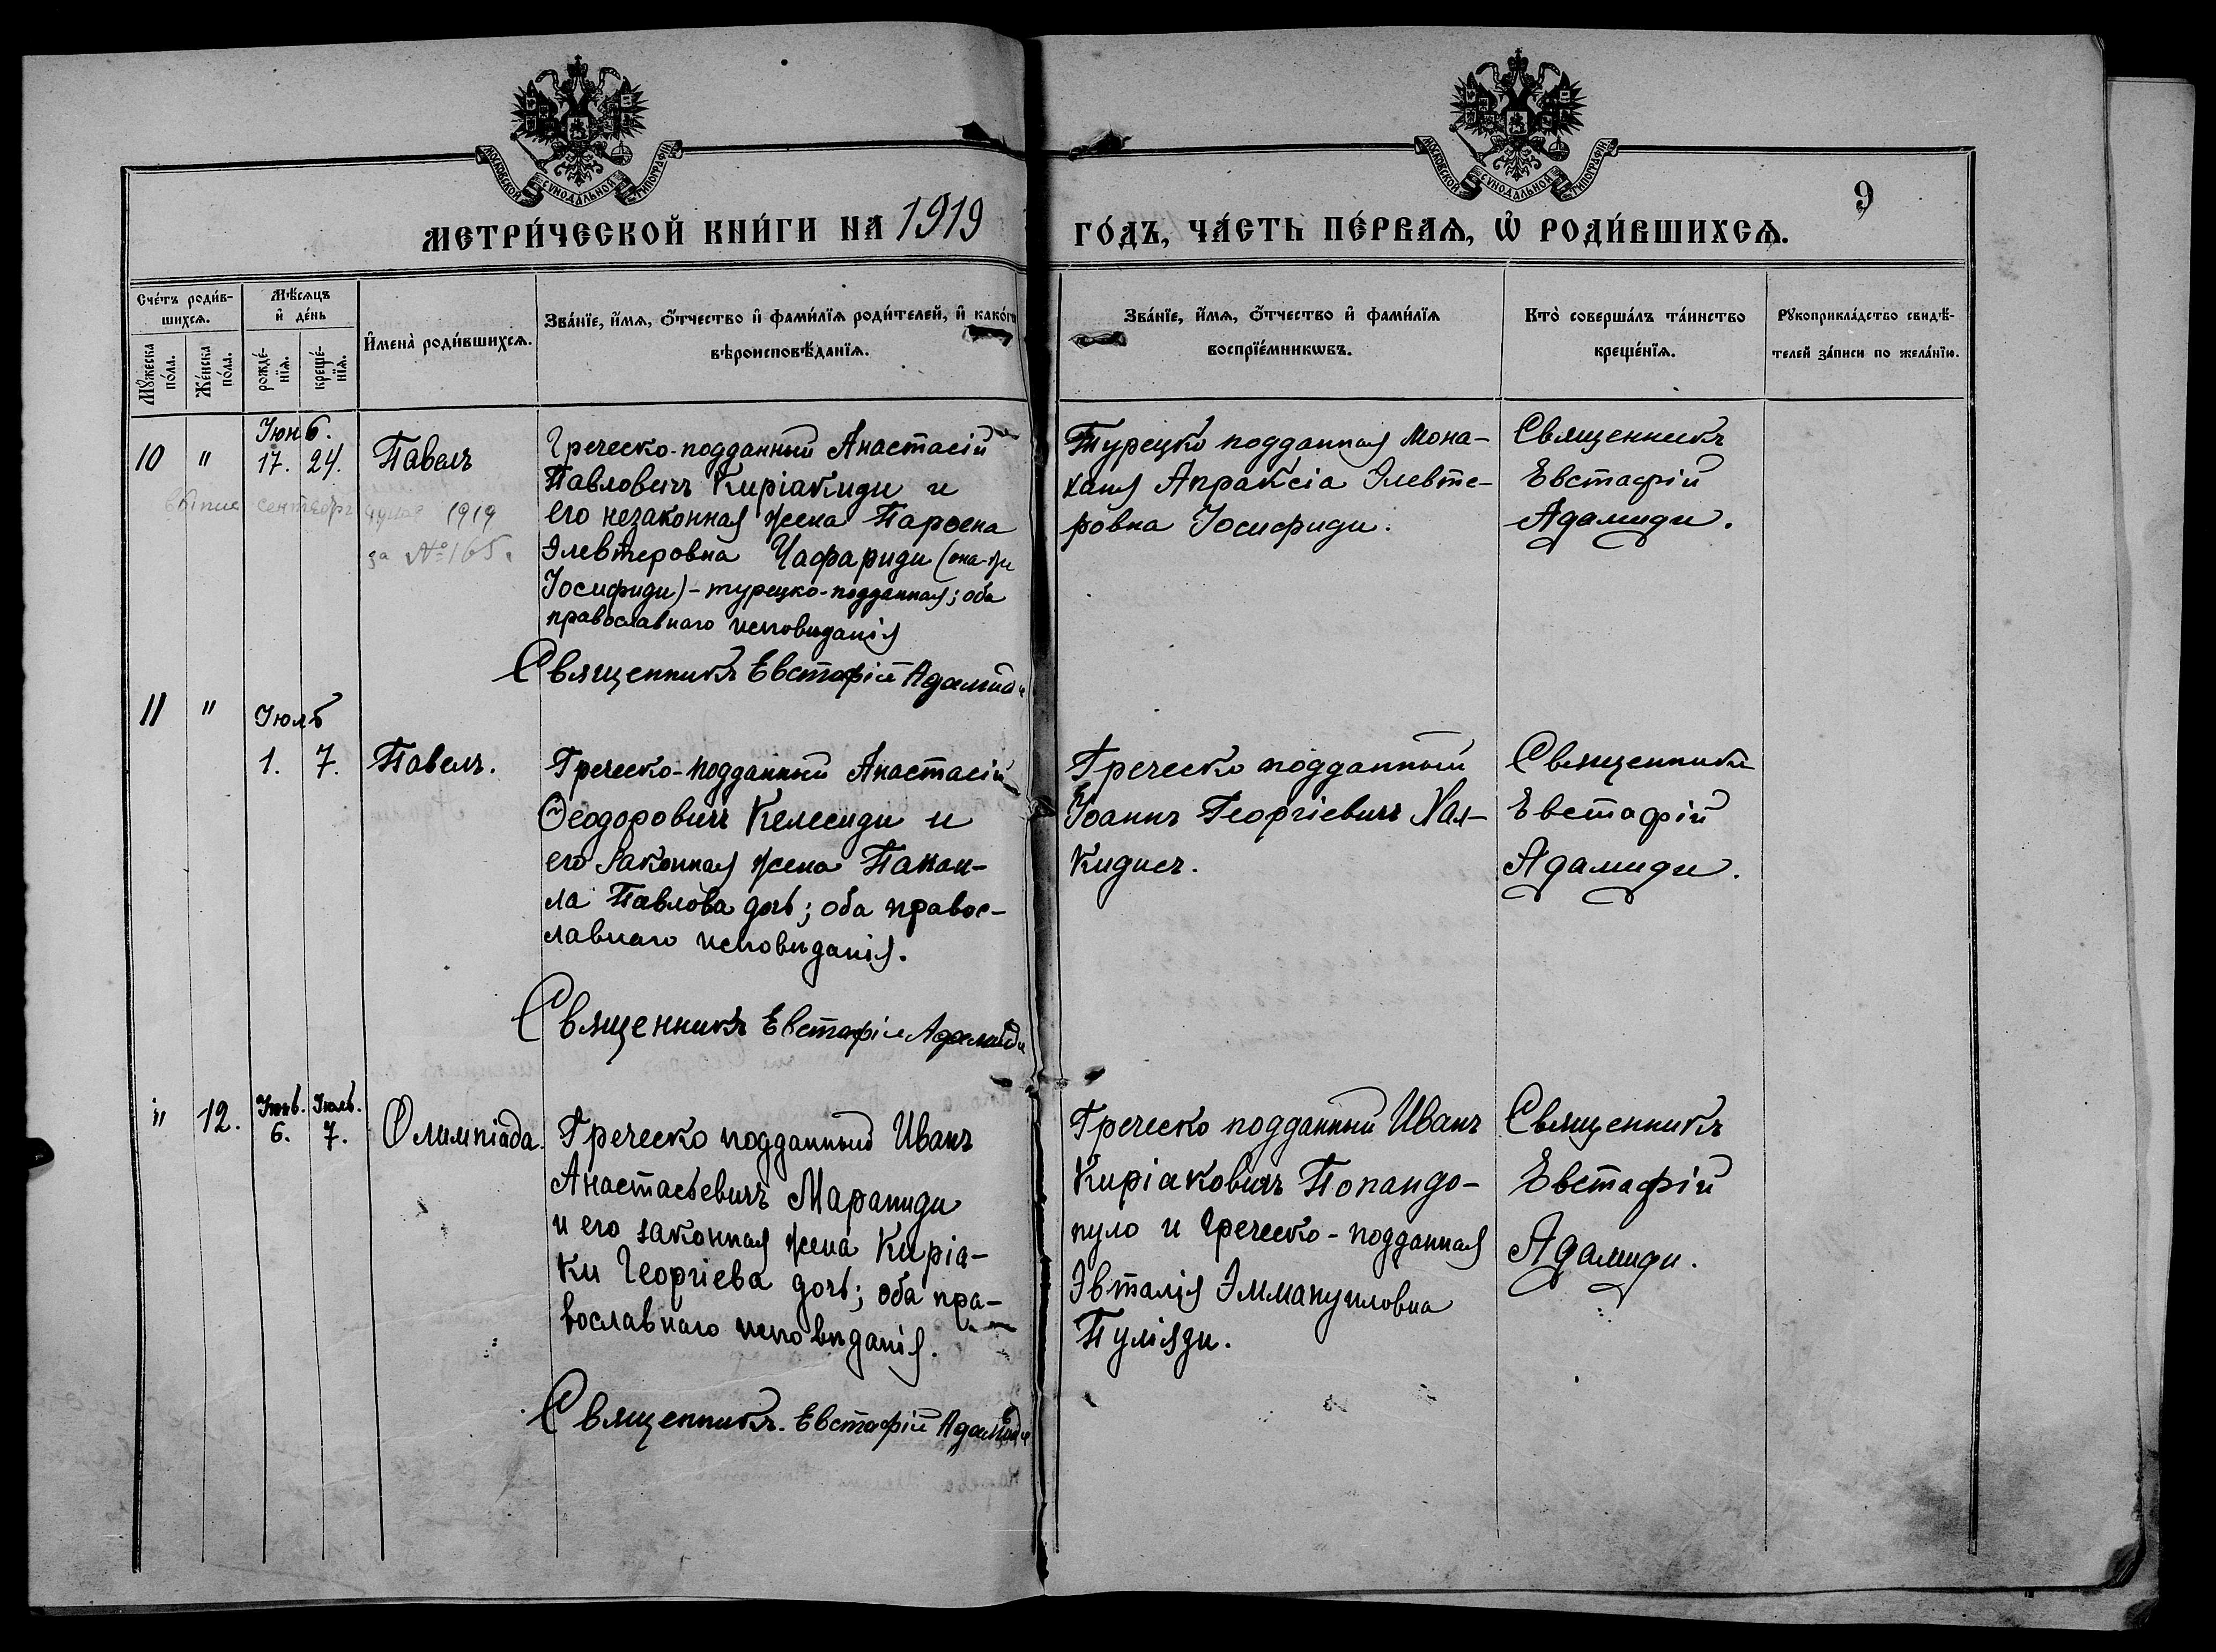 МОСКОВСКОЙ СѴНОДАЛЬНОЙ ТИПОГРАФІИ
МОСКОВСКОЙ СѴНОДАЛЬНОЙ ТИПОГРАФІИ
9
МЕТРИ́ЧЕСКОЙ КНИ́ГИ НА 1919
ГО́ДЪ, ЧА́СТЬ ПЕ́РВАѦ, Ѡ҆ РОДИ́ВШИХСѦ.
Сче́тъ роди́в-
шихсѧ.
Мꙋ́жеска
по́ла.
Же́нска
по́ла.
Мѣ́сѧцъ
и҆ де́нь
рожде́-
нїѧ.
креще́-
нїѧ.
И҆мена̀ роди́вшихсѧ.
Зва́нїе, и҆́мѧ, ѻ҆́тчество и҆ фами́лїѧ роди́телей, и҆ како́гѡ
вѣроисповѣ́данїѧ.
Зва́нїе, и҆́мѧ, ѻ҆́тчество и҆ фами́лїѧ
воспрїе́мникѡвъ.
Кто̀ соверша́лъ та́инство
креще́нїѧ.
Рꙋкоприкла́дство свидѣ́-
телей за́писи по жела́нїю.
10 " Іюнь.
17. 24. Павелъ
1919
за № 165.
Греческо-подданный Анастасій
Павловичъ Киріакиди и
его незаконная жена Парѳена
Элевтеровна Чафариди (она-же
Іосифиди) - турецко-подданная; оба
православнаго исповѣданія
Священникъ Евстафій Адамиди
Турецко подданная Мона-
хиня Апраксіа Элевте-
ровна Іосифиди.
Священникъ
Евстафій
Адамиди.
11 " Іюль
1. 7. Павелъ.
Греческо-подданный Анастасій
Ѳеодоровичъ Келесиди и
его законная жена Панаи-
ла Павлова дочь; оба правос-
лавнаго исповѣданія.
Священникъ Евстафій Адамиди
Греческо подданный
Іоаннъ Георгіевичъ Хал-
кидисъ.
Священникъ
Евстафій
Адамиди.
" 12. Іюнь. Іюль.
6. 7. Олимпіада.
Греческо подданный Иванъ
Анастасьевичъ Мараниди
и его законная жена Киріа-
ки Георгіева дочь; оба пра-
вославнаго исповѣданія.
Священникъ. Евстафій Адамиди
Греческо подданный Иванъ
Киріаковичъ Попандо-
пуло и Греческо-подданная
Эвталія Эммануиловна
Пуліяди.
Священникъ
Евстафій
Адамиди.